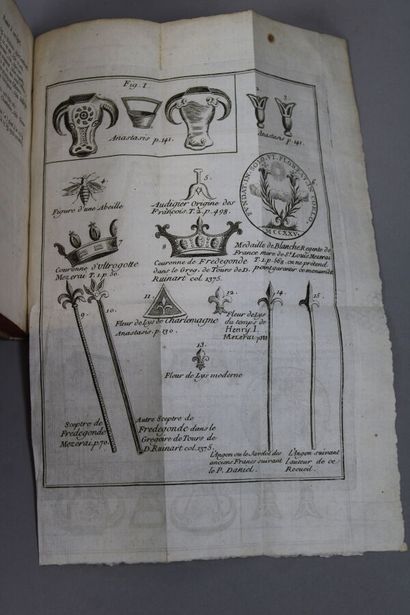 Fig. I.
Anastasis p. 141.
2.
3.
Anastasis p. 141.
4.
Figure d'une Abeille
5.
Audigier Origine des
François. T. 2. p. 498.
6
FUNDATIN
MCCXXVI
7
Couronne d'Ultrogotte
Mezerai T. 1. p. 50.
8
Couronne de Fredegonde
dans le Greg. de Tours de D.
Ruinart col. 1375.
Medaille de Blanche Regente de
France mere de St. Louis Mezerai
9.
10.
11.
Fleur de Lys de Charlemagne
Anastasis. p. 130.
12.
Fleur de Lys
du temps de
Henry. I.
Mezerai
13.
Fleur de Lys moderne
14.
15.
Sceptre de
Fredegonde
Mezerai. p. 70.
Autre Sceptre de
Fredegonde dans le
Gregoire de Tours de
D. Ruinart. col. 1375.
L'Angon ou le Javelot des
anciens Francs suivant
le P. Daniel.
L'Angon suivant
l'auteur de ce
Recueil.